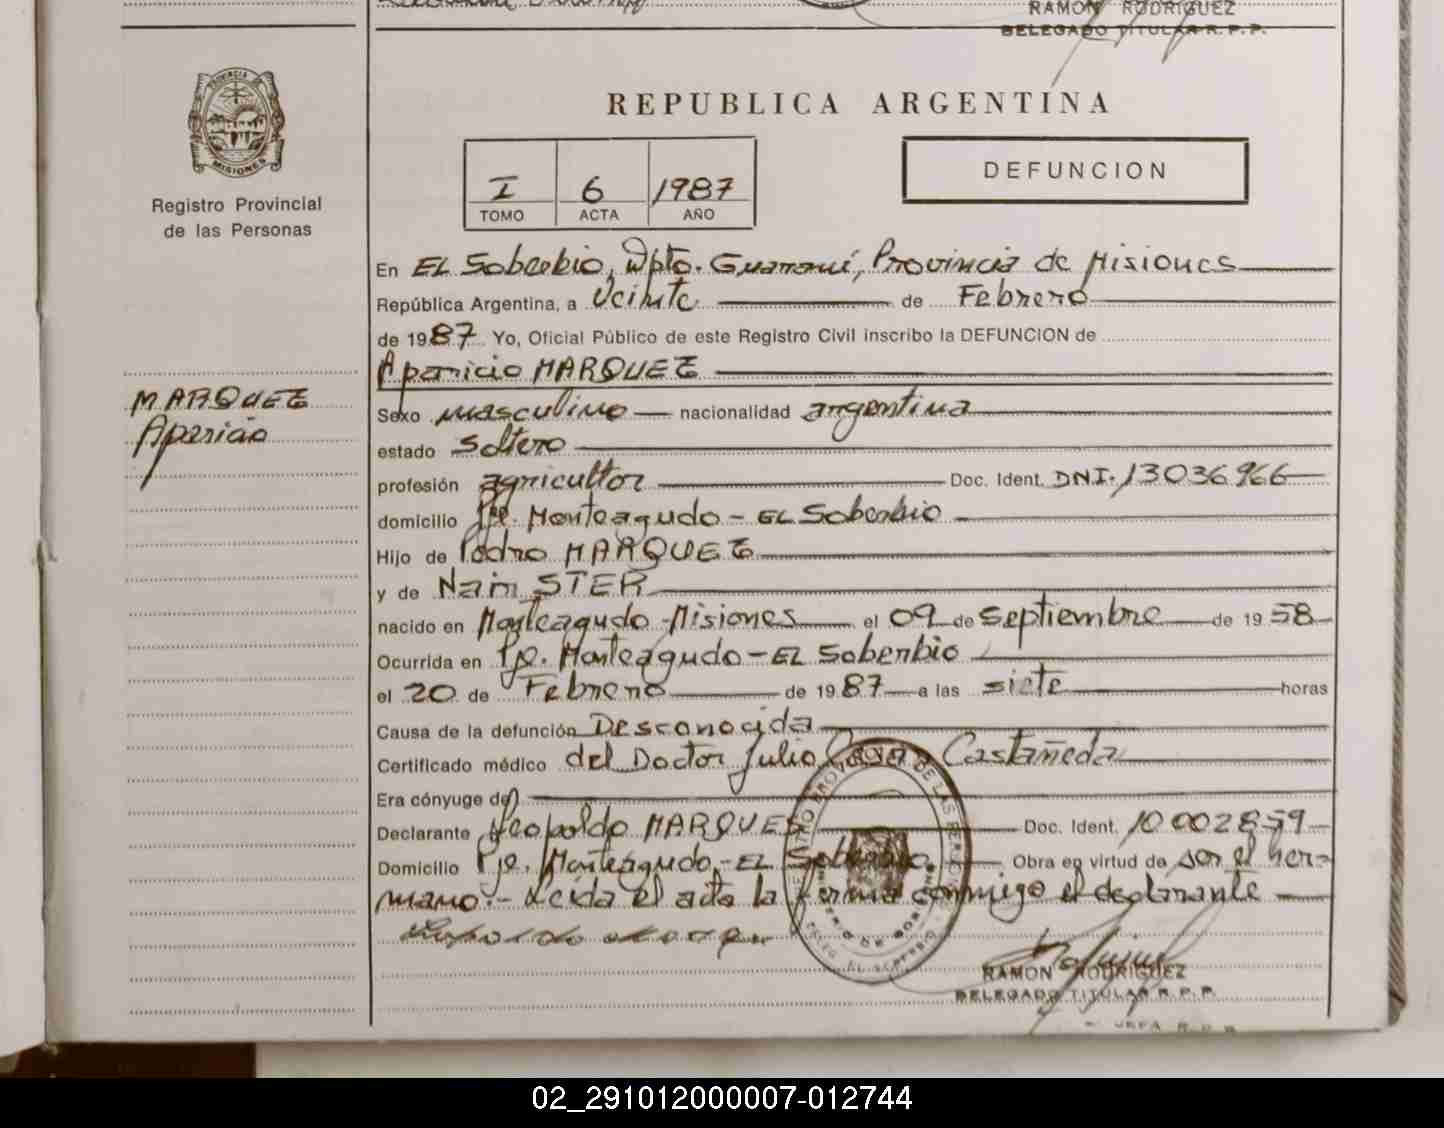 RAMON RODRIGUEZ
DELEGADO TITULAR R. P. P.
PROVINCIA DE
MISIONES
Registro Provincial
de las Personas
REPUBLICA ARGENTINA
I 6 1987
TOMO ACTA AÑO
DEFUNCION
En EL Soberbio, Dpto. Guaraní, Provincia de Misiones
República Argentina, a Veinte de Febrero
de 1987 Yo, Oficial Público de este Registro Civil inscribo la DEFUNCION de
Aparicio MARQUEZ
MARQUEZ
Aparicio
Sexo masculino nacionalidad argentina
estado Soltero
profesión agricultor Doc. Ident. DNI. 13036966
domicilio Pje. Monteagudo - EL Soberbio
Hijo de Pedro MARQUEZ
y de Nair STER
nacido en Monteagudo - Misiones el 09 de septiembre de 1958
Ocurrida en Pje. Monteagudo - EL Soberbio
el 20 de Febrero de 1987 a las siete horas
Causa de la defunción Desconocida
Certificado médico del Doctor Julio Castañeda
Era cónyuge de
Declarante Leopoldo MARQUES Doc. Ident. 10002859
Domicilio Pje. Monteagudo - EL Soberbio Obra en virtud de ser el her-
mano.- Leida el acta la firma conmigo el declarante
RAMON RODRIGUEZ
DELEGADO TITULAR R. P. P.
02_291012000007-012744